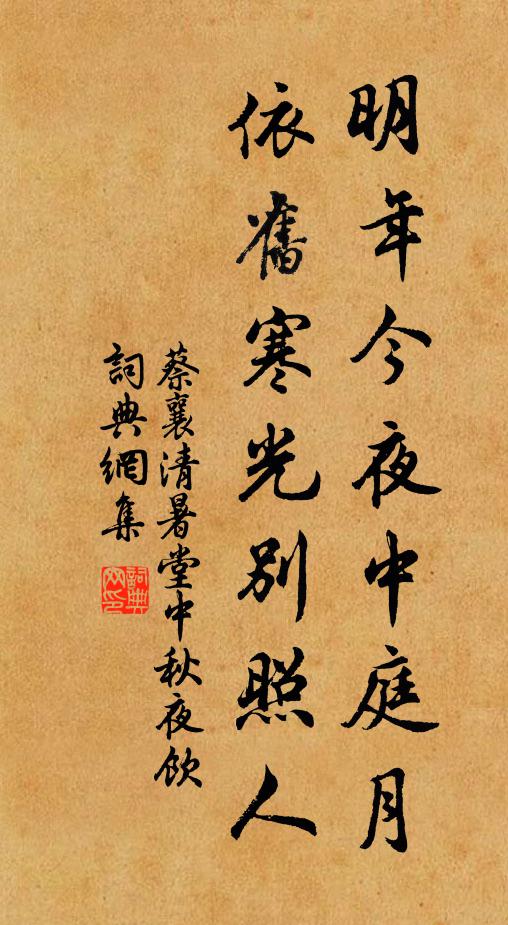 明年今夜中庭月
依舊寒光別照人
蔡襄清暑堂中秋夜飲
詞典網集
詞典网印